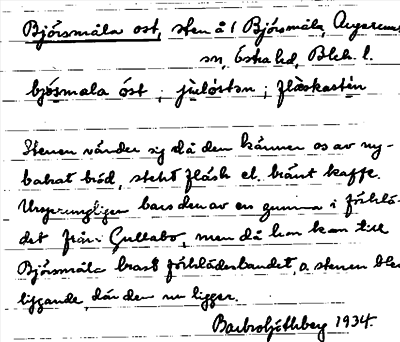 Björsmåla ost, sten å 1 Björsmåla,
sn, Östra hd, Blek. l.
bjö̱smala óst ; julóstan ; fláskastin
Stenen vänder sig då den känner os av ny-
bakat bröd, stekt fläsk el. bränt kaffe.
Ursprungligen bars den av en gumma i förklä-
det från Gullabo, men då hon kom till
Björsmåla brast förklädesbandet, o stenen blev
liggande, där den nu ligger.
1934.